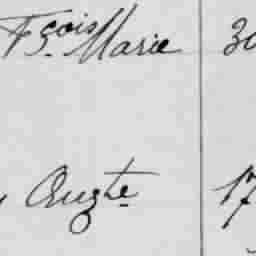 Fçois Marie 30
Augte 17